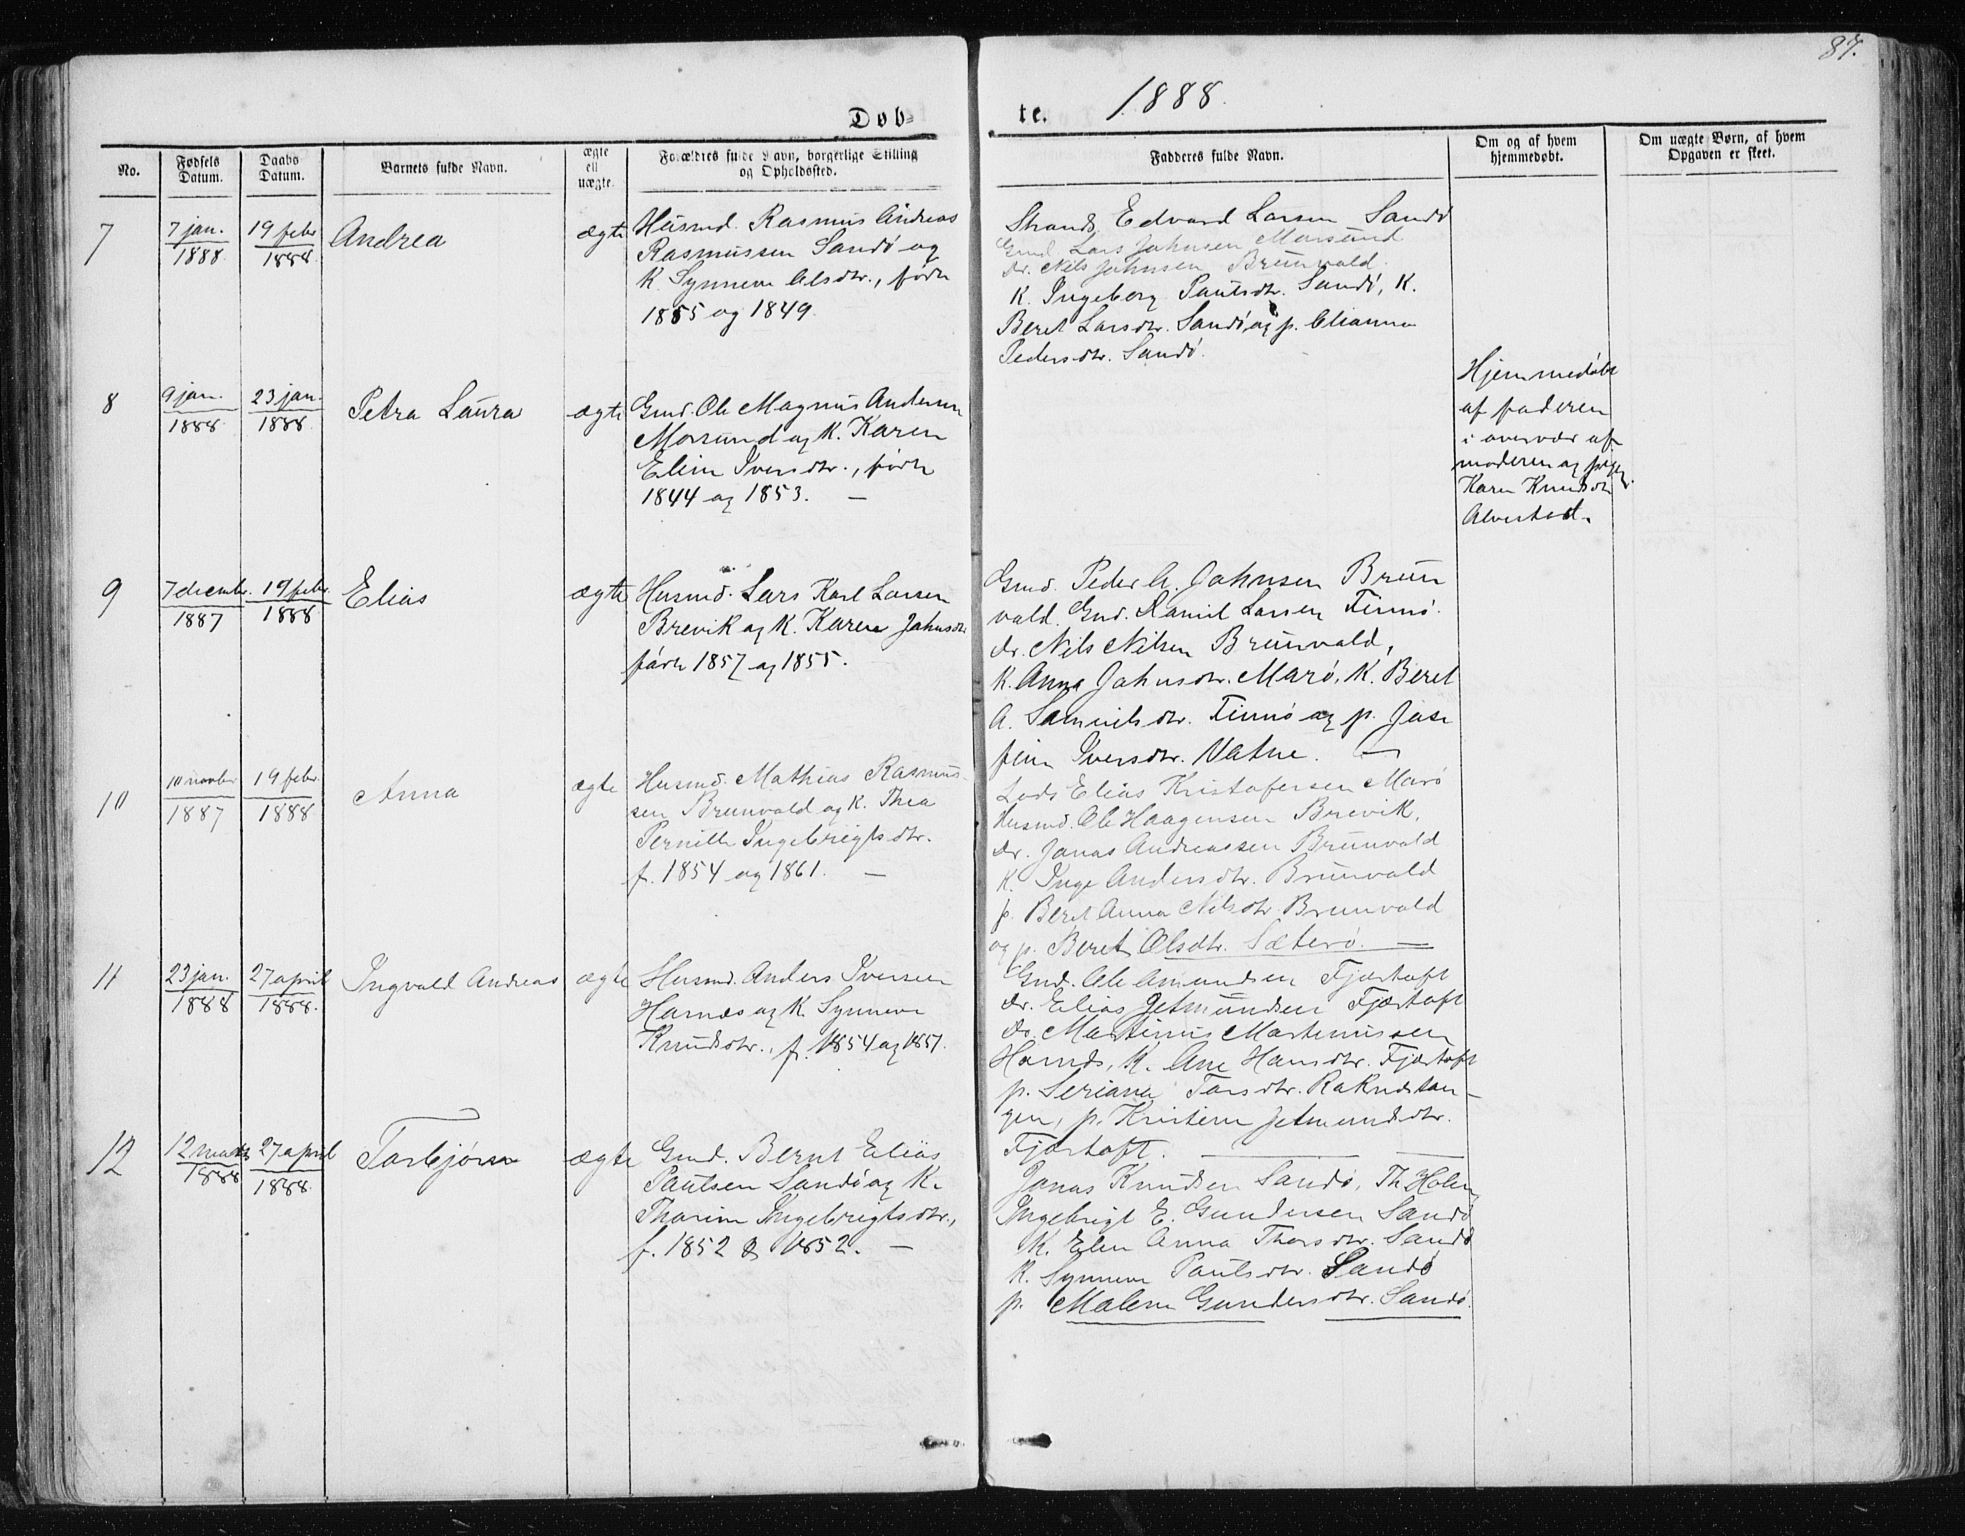 87.
Døbte. 1888.
No.
Fødsels Datum.
Daabs Datum.
Barnets fulde Navn.
ægte ell uægte.
Forældres fulde Navn, borgerlige Stilling og Opholdssted.
Faddernes fulde Navn.
Om og af hvem hjemmedøbt.
Om uægte Børn, af hvem Opgaven er skeet.
7
7 jan. 1888
19 febr 1888
Andrea
ægte
Husmd. Rasmus Andreas
Rasmussen Sandø og
K. Synneve Olsdtr., fødte
1855 og 1849.
Strands. Edvard Larsen Sandø
Gmd Lars Johnsen Morsund
dr. Nils Johnsen Brunvold.
K. Ingeborg Paulsdtr. Sandø, K.
Beret Larsdtr. Sandø og p. Olianna
Pedersdtr. Sandø.
8
9 jan. 1888
23 jan. 1888
Petra Laura
ægte
Gmd. Ole Magnus Andersen
Morsund og K. Karen
Eline Iversdtr., fødte
1844 og 1853. —
Hjemmedøbt
af faderen
i overvær af
moderen og pigen
Karen Knudsdtr
Alvestad.
9
7 decembr. 1887
19 febr. 1888
Elias
ægte
Husmd. Lars Karl Larsen
Brevik og K. Karen Johnsdtr
fødte 1857 og 1855.
Gmd. Peder A. Johnsen Brun
vold. Gmd. Daniel Larsen Finnø.
dr. Nils Nilsen Brunvold,
K. Anna Johnsdtr. Marø, K. Beret
A. Samuelsdtr. Finnø og p. Jose
fine Iversdtr. Vatne. —
10
10 novbr 1887
19 febr. 1888
Anna
ægte
Husmd. Mathias Rasmus-
sen Brunvold og K. Thea
Pernille Ingebrigtsdtr.
f. 1854 og 1861. —
Lods Elias Kristofersen Marø
Husmd. Ole Haagensen Brevik,
dr. Jonas Andreassen Brunvold
K. Inge Andersdtr. Brunvold
p. Beret Anna Nilsdtr. Brunvold
og p. Beret Olsdtr. Sæterø. —
11
23 jan. 1888
27 april 1888.
Ingvald Andreas
ægte
Husmd. Anders Iversen
Harnæs og K. Synneve
Knudsdtr., f. 1854 og 1857.
Gmd. Ole Amundsen Fjørtoft
dr. Elias Jetmundsen Fjørtoft
dr. Martinus Martinussen
Harnæs, K. Ane Hansdtr. Fjørtoft
p. Seriana Torsdtr. Raknestan-
gen, p. Kristine Jetmundsdtr.
Fjørtoft. —
12
12 marts 1888
27 april 1888.
Torbjørn
ægte
Gmd. Bernt Elias
Paulsen Sandø og K.
Thorine Ingebrigtsdtr.,
f. 1852 & 1852. —
Jonas Knudsen Sandø, Th Holm,
Ingebrigt E. Gundersen Sandø
K. Elen Anna Thorsdtr. Sandø
K. Synneve Paulsdtr. Sandø
p. Malene Gundersdtr. Sandø.